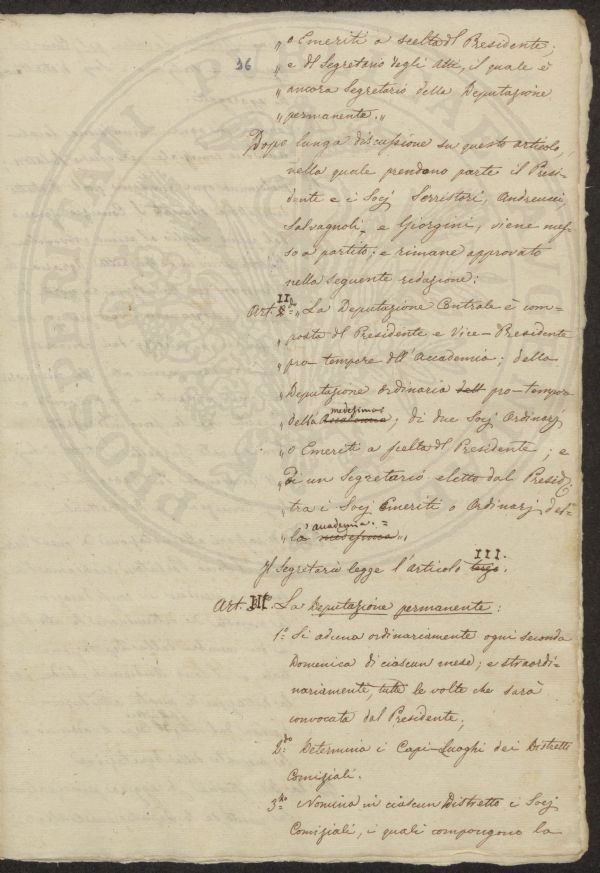 „ o Emeriti a scelta del Presidente;
36
„ e del Segretario degli Atti, il quale è
„ ancora Segretario della Deputazione
„ permanente.„
Dopo lunga discussione su questo articolo,
nella quale prendono parte il Presi-
dente e i Socj Serristori, Andreucci,
Salvagnoli, e Giorgini, viene mes-
so a partito, e rimane approvato
nella seguente redazione:
Art. II.° „ La Deputazione Centrale è com=
„ posta del Presidente e Vice-Presidente
„ pro-tempore dell'Accademia; della
„ Deputazione ordinaria dell pro-tempore
medesima
„ della Accademia; di due Socj Ordinarj
„ o Emeriti a scelta del Presidente; e
„ di un Segretario eletto dal Presid.e
tra i Socj Emeriti o Ordinarj del=
accademia.=
„ la medesima „.
III.
Il Segretario legge l'articolo terzo.
Art. III.° La Deputazione permanente:
1.° Si aduna ordinariamente ogni seconda
Domenica di ciascun mese; e straordi-
nariamente, tutte le volte che sarà
convocata dal Presidente;
2.do Determina i Capi-Luoghi dei Distretti
Comiziali.
3.zo Nomina in ciascun Distretto i Socj
Comiziali, i quali compongono la